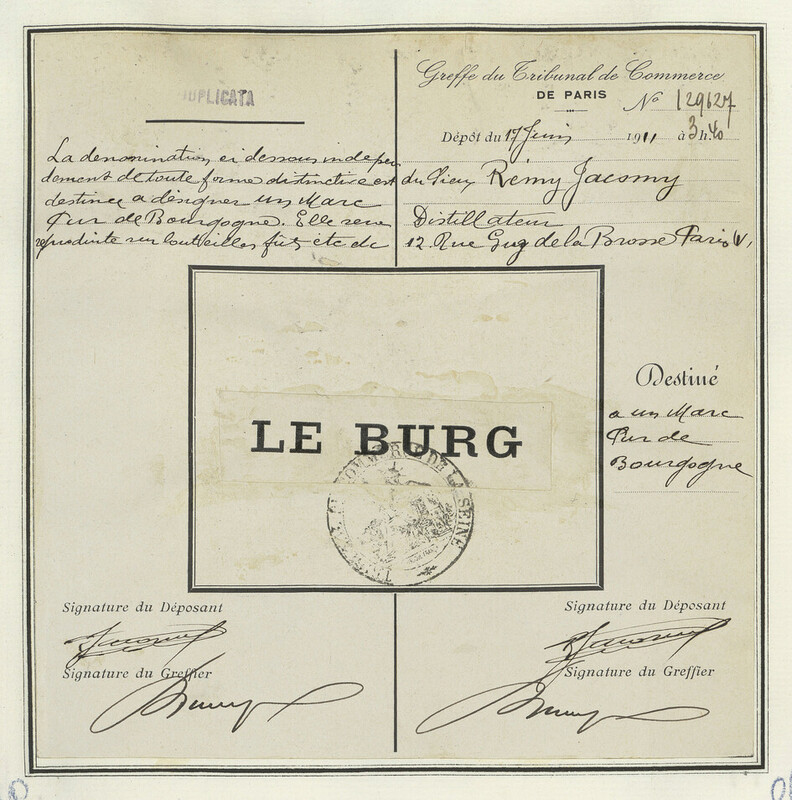 DUPLICATA
La dénomination ci dessous indepen
dament de toute forme distinctive est
destinée a désigner un Marc
Pur de Bourgogne. Elle sera
reproduite sur bouteilles fûts etc etc
Greffe du Tribunal de Commerce
DE PARIS
No 129627
Dépôt du 17 Juin 1911 à 3h.40
du Sieur Rémy Jacomy
Distillateur
12 Rue Guy de la Brosse Paris V.
LE BURG
Destiné
a un Marc
Pur de
Bourgogne
COMMERCE DE LA SEINE
Signature du Déposant
Signature du Greffier
Signature du Déposant
Signature du Greffier